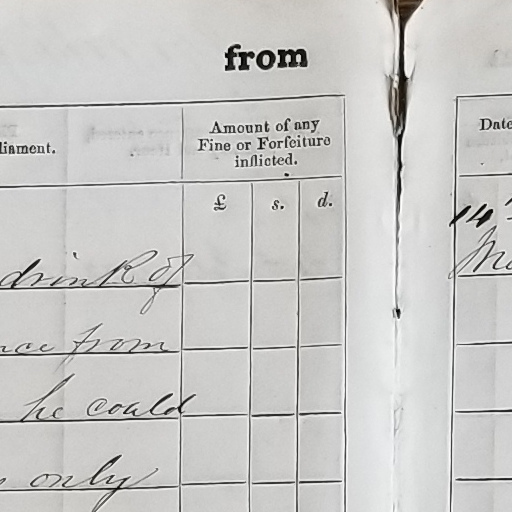 from
liament.
Amount of any
Fine or Forfeiture
inflicted.
Date
£ s. d.
14
drink of
nce from
he could
only